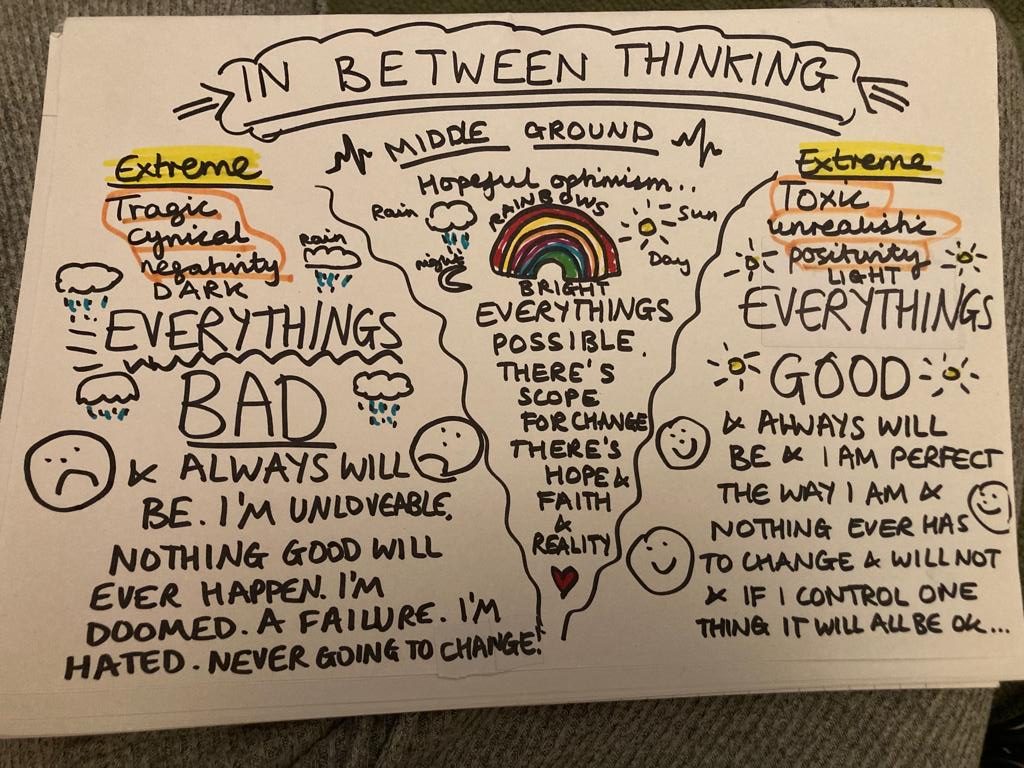 IN BETWEEN THINKING
MIDDLE GROUND
Extreme
Tragic
Cynical
negativity
DARK
Rain
EVERYTHINGS
BAD
& ALWAYS WILL
BE. I'M UNLOVEABLE.
NOTHING GOOD WILL
EVER HAPPEN. I'M
DOOMED. A FAILURE. I'M
HATED. NEVER GOING TO CHANGE!
Hopeful optimism..
Rain
RAINBOWS
Sun
night
Day
BRIGHT
EVERYTHINGS
POSSIBLE.
THERE'S
SCOPE
FOR CHANGE
THERE'S
HOPE &
FAITH
&
REALITY
Extreme
Toxic
unrealistic
positivity
LIGHT
EVERYTHINGS
GOOD
& ALWAYS WILL
BE & I AM PERFECT
THE WAY I AM &
NOTHING EVER HAS
TO CHANGE & WILL NOT
& IF I CONTROL ONE
THING IT WILL ALL BE OK...